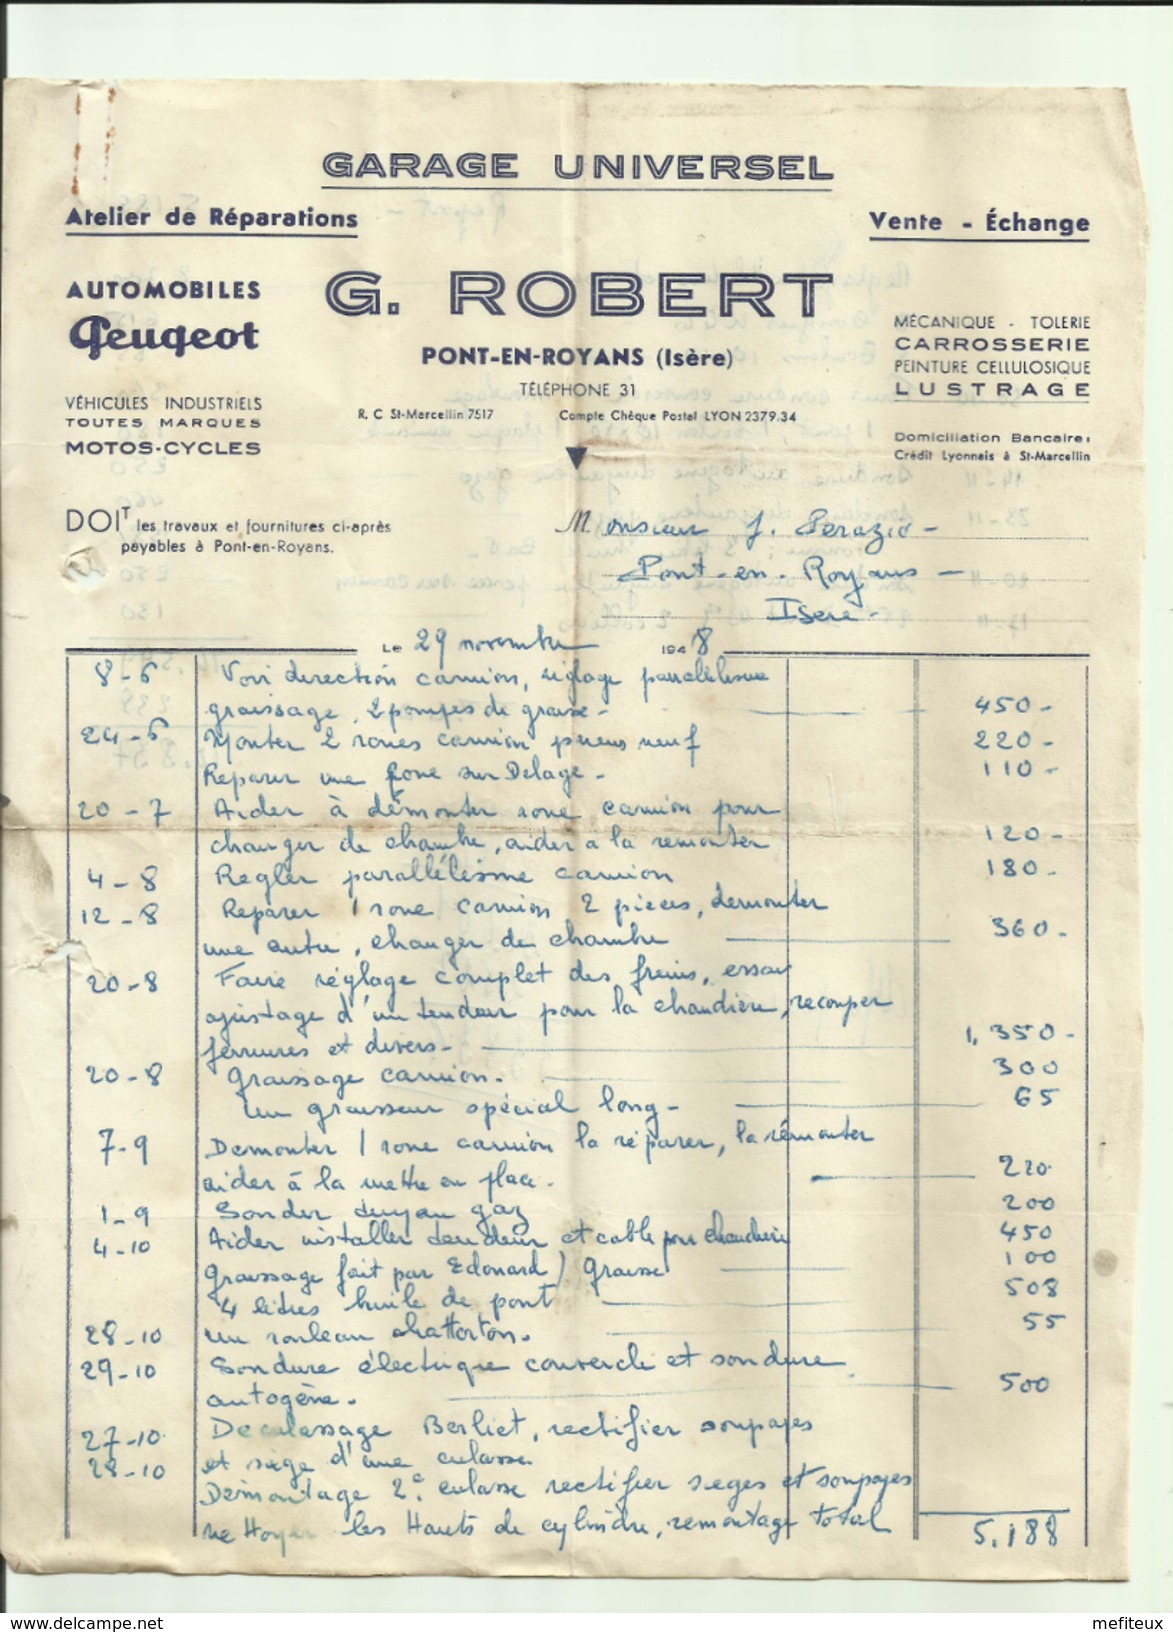 GARAGE UNIVERSEL
Atelier de Réparations
Vente - Échange
AUTOMOBILES
Peugeot
G. ROBERT
PONT-EN-ROYANS (Isère)
TÉLÉPHONE 31
R. C St-Marcellin 7517 Compte Chèque Postal LYON 2379.34
VÉHICULES INDUSTRIELS
TOUTES MARQUES
MOTOS-CYCLES
MÉCANIQUE - TOLERIE
CARROSSERIE
PEINTURE CELLULOSIQUE
LUSTRAGE
Domiciliation Bancaire:
Crédit Lyonnais à St-Marcellin
DOIT les travaux et fournitures ci-après
payables à Pont-en-Royans.
Monsieur J. Perazio -
Pont-en-Royans -
Isère -
Le 29 novembre 1948
8-6 Voir direction camion, réglage parallélisme
graissage, 2 pompes de graisse - 450-
24-6 Monter 2 roues camion pneus neuf 220-
Reparer une roue sur Delage - 110-
20-7 Aider à démonter roue camion pour
changer de chambre, aider a la remonter 120-
4-8 Regler parallélisme camion 180-
12-8 Reparer 1 roue camion 2 pieces, demonter
une autre, changer de chambre 360-
20-8 Faire réglage complet des freins, essai
ajustage d'un tendeur pour la chaudière, recouper
ferrures et divers - 1,350-
20-8 Graissage camion. 300
Un graisseur spécial long - 65
7-9 Demonter 1 roue camion la réparer, la rémonter
aider à la mettre en place. 220
1-9 Souder tuyau gaz 200
4-10 Aider installer tendeur et cable pour chaudière 450
Graissage fait par Edouard) Graisse 100
4 litres huile de pont 508
28-10 Un rouleau chatterton. 55
29-10 Soudure électrique couvercle et soudure
autogène. 500
27-10 Deculassage Berliet, rectifier soupapes
28-10 et siège d'une culasse.
Démontage 2e. culasse rectifier sieges et soupapes
nettoyer les Hauts de cylindre, remontage total
5.188
mefiteux